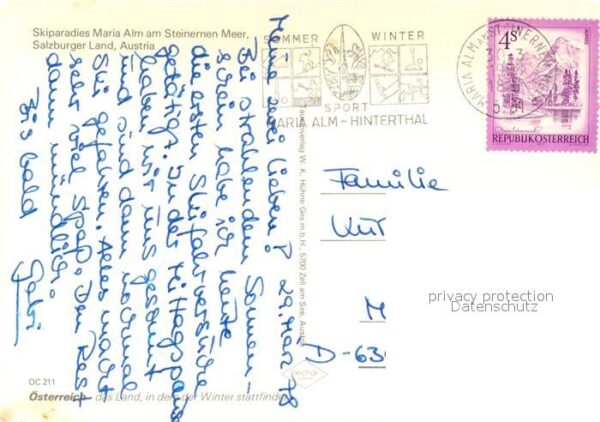 Skiparadies Maria Alm am Steinernen Meer,
Salzburger Land, Austria
SOMMER WINTER
SPORT
MARIA ALM - HINTERTHAL
MARIA ALM AM STEINERNEN
4S
REPUBLIK ÖSTERREICH
29. März 78
Meine zwei Lieben!
Bei strahlendem Sonnen-
schein habe ich heute
die ersten Skifahrversuche
getätigt. In der Mittagspause
haben wir uns gesonnt
und sind dann nochmal
Ski gefahren. Alles macht
sehr viel Spaß. Den Rest
dann mündlich.
Bis bald
Gabi
W. K. Hühne Ges. m. b. H., 5700 Zell am See, Austria
Familie
Kur
M
D-63
privacy protection
Datenschutz
OC 211
Österreich - das Land, in dem der Winter stattfindet